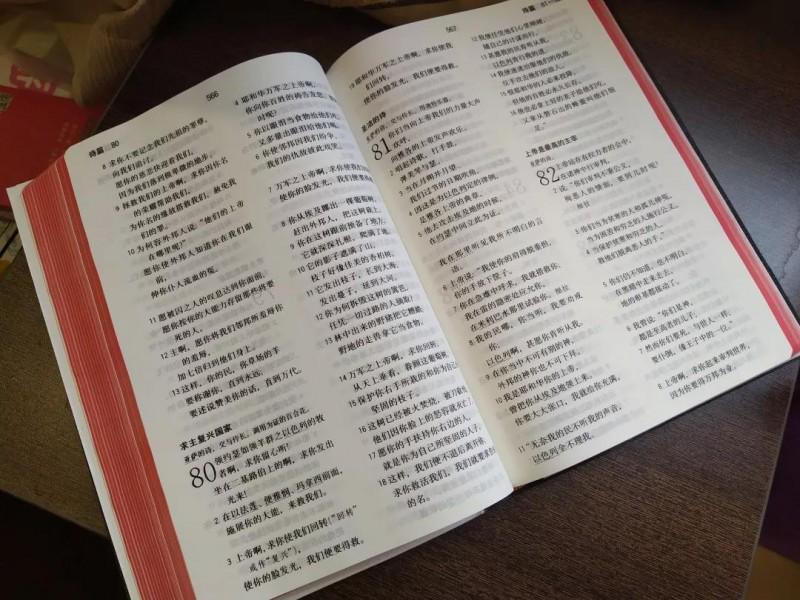 566
诗篇 80
8 求你不要记念我们先祖的罪孽，
向我们追讨。
愿你的慈悲快迎着我们，
因为我们落到极卑微的地步。
9 拯救我们的上帝啊，求你因你名
的荣耀帮助我们，
为你名的缘故搭救我们，赦免我
们的罪。
10 为何容外邦人说：“他们的上帝
在哪里呢？”
愿你使外邦人知道你在我们眼
前，
伸你仆人流血的冤。
11 愿被囚之人的叹息达到你面前，
愿你按你的大能力存留那些将要
死的人。
12 主啊，愿你将我们邻邦所羞辱你
的羞辱，
加七倍归到他们身上。
13 这样，你的民，你草场的羊
要称谢你，直到永远；
要述说赞美你的话，直到万代。
求主复兴国家
亚萨的诗，交与伶长。调用为证的百合花。
80 领约瑟如领羊群之以色列的牧
者啊，求你留心听！
坐在二基路伯上的啊，求你发出
光来！
2 在以法莲、便雅悯、玛拿西前面，
施展你的大能，来救我们。
3 上帝啊，求你使我们回转（“回转”
或作“复兴”），
使你的脸发光，我们便要得救。
4 耶和华万军之上帝啊，
你向你百姓的祷告发怒，
时呢？
5 你以眼泪当食物给他们吃，
又多量出眼泪给他们喝。
6 你使邻邦因我们纷争，
我们的仇敌彼此戏笑。
7 万军之上帝啊，求你使我们
使你的脸发光，我们便要得
8 你从埃及挪出一棵葡萄树，
赶出外邦人，把这树栽上。
9 你在这树跟前预备了地方，
它就深深扎根，爬满了地。
10 它的影子遮满了山，
枝子好像佳美的香柏树。
11 它发出枝子，长到大海，
发出蔓子，延到大河。
12 你为何拆毁这树的篱笆，
任凭一切过路的人摘取？
13 林中出来的野猪把它糟蹋，
野地的走兽拿它当食物。
14 万军之上帝啊，求你回转，
从天上垂看，眷顾这葡萄树，
15 保护你右手所栽的和你为自己
坚固的枝子。
16 这树已经被火焚烧，被刀砍
他们因你脸上的怒容就灭亡了。
17 愿你的手扶持你右边的人，
就是你为自己所坚固的人子。
18 这样，我们便不退后离开你，
求你救活我们，我们就要求告
的名。
567
诗篇 81
19 耶和华万军之上帝啊，求你使我
们回转，
使你的脸发光，我们便要得救。
亚萨的诗，交与伶长。用迦特乐器。
81 你们当向上帝我们的力量大声
欢呼，
向雅各的上帝发声欢乐。
2 唱起诗歌，打手鼓，
弹美琴与瑟。
3 当在月朔并月望，
我们过节的日期吹角，
4 因这是为以色列定的律例，
是雅各上帝的典章。
5 他去攻击埃及地的时候，
在约瑟中间立此为证。
我在那里听见我所不明白的言
语：
6 上帝说：“我使你的肩得脱重担，
你的手放下筐子。
7 你在急难中呼求，我就搭救你，
我在雷的隐密处应允你，
在米利巴水那里试验你。
8 我的民哪，你当听，我要劝戒
你；
以色列啊，甚愿你肯听从我。
9 在你当中不可有别的神，
外邦的神你也不可下拜。
10 我是耶和华你的上帝，
曾把你从埃及地领上来，
你要大大张口，我就给你充满。
11 “无奈我的民不听我的声音，
以色列全不理我。
12 我便任凭他们心里刚硬，
随自己的计谋而行。
13 甚愿我的民肯听从我，
以色列肯行我的道，
14 我便速速治服他们的仇敌，
反手攻击他们的敌人。
15 恨耶和华的人必来投降，
但他的百姓必永久长存。
16 他也必拿上好的麦子给他们吃，
又拿从磐石出的蜂蜜叫他们饱
足。”
上帝是最高的主宰
亚萨的诗。
82 上帝站在有权力者的会中，
在诸神中行审判，
2 说：“你们审判不秉公义，
徇恶人的情面，要到几时呢？
细拉
3 你们当为贫寒的人和孤儿伸冤，
当为困苦和穷乏的人施行公义。
4 当保护贫寒和穷乏的人，
救他们脱离恶人的手。”
5 你们仍不知道，也不明白，
在黑暗中走来走去；
地的根基都摇动了。
6 我曾说：“你们是神，
都是至高者的儿子。
7 然而你们要死，与世人一样，
要仆倒，像王子中的一位。”
8 上帝啊，求你起来审判世界，
因为你要得万邦为业。